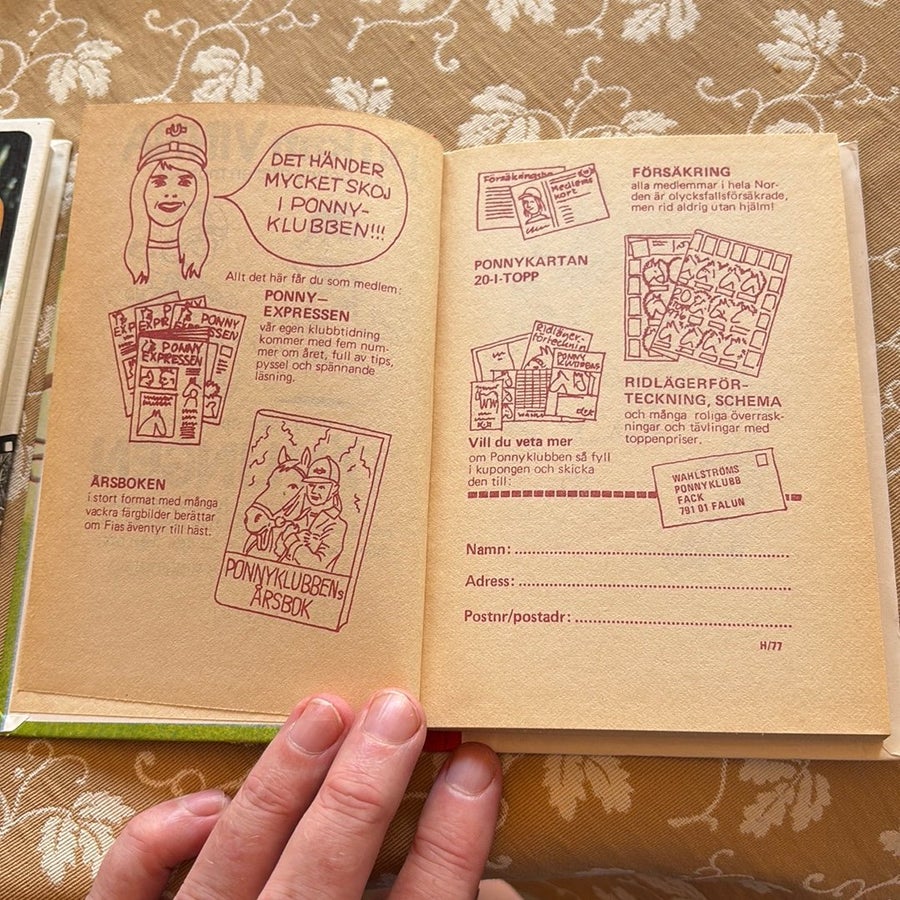 DET HÄNDER
MYCKET SKOJ
I PONNY-
KLUBBEN!!!
Allt det här får du som medlem:
PONNY-
EXPRESSEN
vår egen klubbtidning
kommer med fem num-
mer om året, full av tips,
pyssel och spännande
läsning.
PONNY
EXPRESSEN
ÅRSBOKEN
i stort format med många
vackra färgbilder berättar
om Fias äventyr till häst.
PONNYKLUBBENS
ÅRSBOK
Medlems
kort
FÖRSÄKRING
alla medlemmar i hela Nor-
den är olycksfallsförsäkrade,
men rid aldrig utan hjälm!
PONNYKARTAN
20-I-TOPP
Ridläger-
förteckning
RIDLÄGERFÖR-
TECKNING, SCHEMA
och många roliga överrask-
ningar och tävlingar med
toppenpriser.
Vill du veta mer
om Ponnyklubben så fyll
i kupongen och skicka
den till:
WAHLSTRÖMS
PONNYKLUBB
FACK
791 01 FALUN
Namn:
Adress:
Postnr/postadr:
H/77